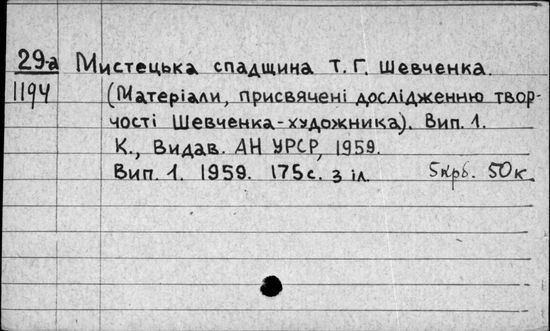 29-а Мистецька спадщина Т. Г. Шевченка.
1194 (Матеріали, присвячені дослідженню твор-
чості Шевченка-художника). Вип. 1.
К., Видав. АН УРСР, 1959.
Вип. 1. 1959. 175с. з іл. 5крб. 50к.